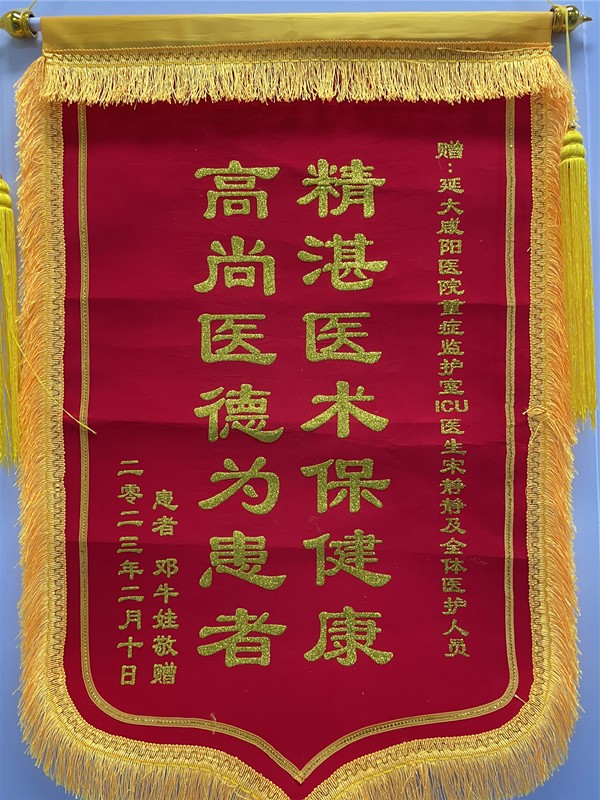 赠:延大咸阳医院重症监护室ICU医生宋静静及全体医护人员
精湛医术保健康
高尚医德为患者
患者 邓牛娃敬赠
二零二三年二月十日